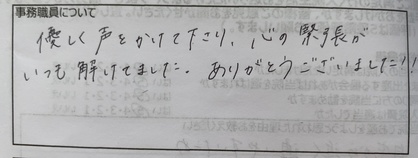 事務職員について
優しく声をかけて下さり、心の緊張が
いつも解けてました。ありがとうございました!!